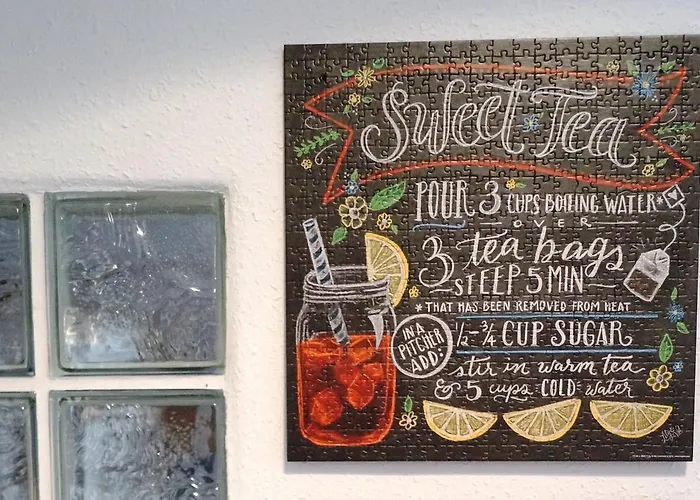 Sweet Tea
POUR 3 CUPS BOILING WATER*
OVER
3 tea bags
STEEP 5 MIN
*THAT HAS BEEN REMOVED FROM HEAT
IN A
PITCHER
ADD:
1/2-3/4 CUP SUGAR
stir in warm tea
& 5 cups COLD water